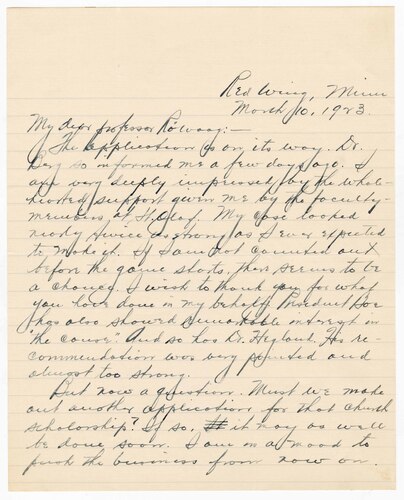 Red Wing, Minn
March 10, 1923.
My dear professor Rölvaag:—
The application is on its way. Dr.
Berg so informed me a few days ago. I
am very deeply impressed by the whole-
hearted support given me by the faculty-
members at St. Olaf. My case looked
nearly twice as strong as I ever expected
to make it. If I am not counted out
before the game starts, there seems to be
a chance. I wish to thank you for what
you have done in my behalf. President Boe
has also showed remarkable interest in
"the cause". And so has Dr. Hegland. His re-
commendation was very pointed and
almost too strong.
But now a question. Must we make
out another application for that church
scholarship? If so, it may as well
be done soon. I am in a mood to
push the business from now on.